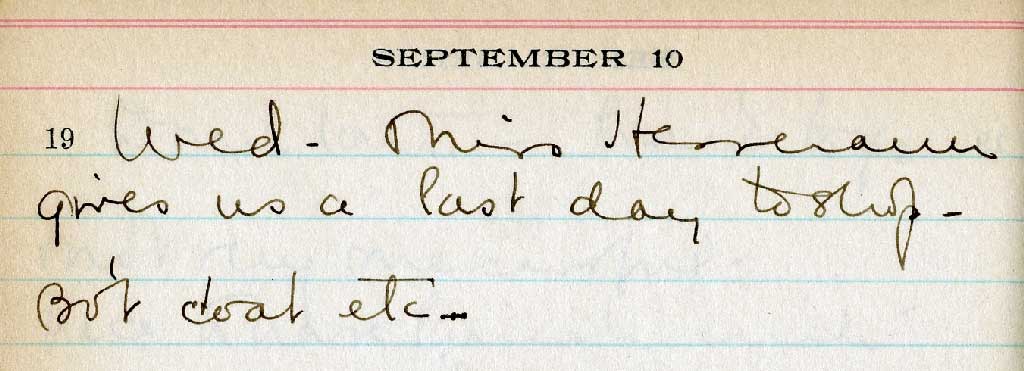 SEPTEMBER 10
19 Wed - Miss
gives us a last day to shop -
Bo't coat etc -